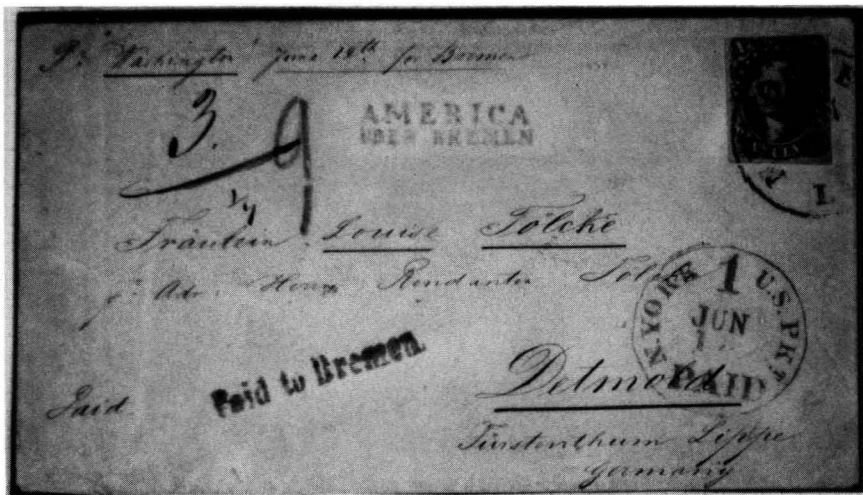 Pr "Washington" June 18th for Bremen
3.
9
AMERICA
ÜBER BREMEN
Fräulein Louise Tölcke
pr Adr: Herrn Rendanten Tölcke
N.YORK 1 U.S.PKT
JUN
PAID
Paid to Bremen.
Paid
Detmold
Fürstenthum Lippe
Germany